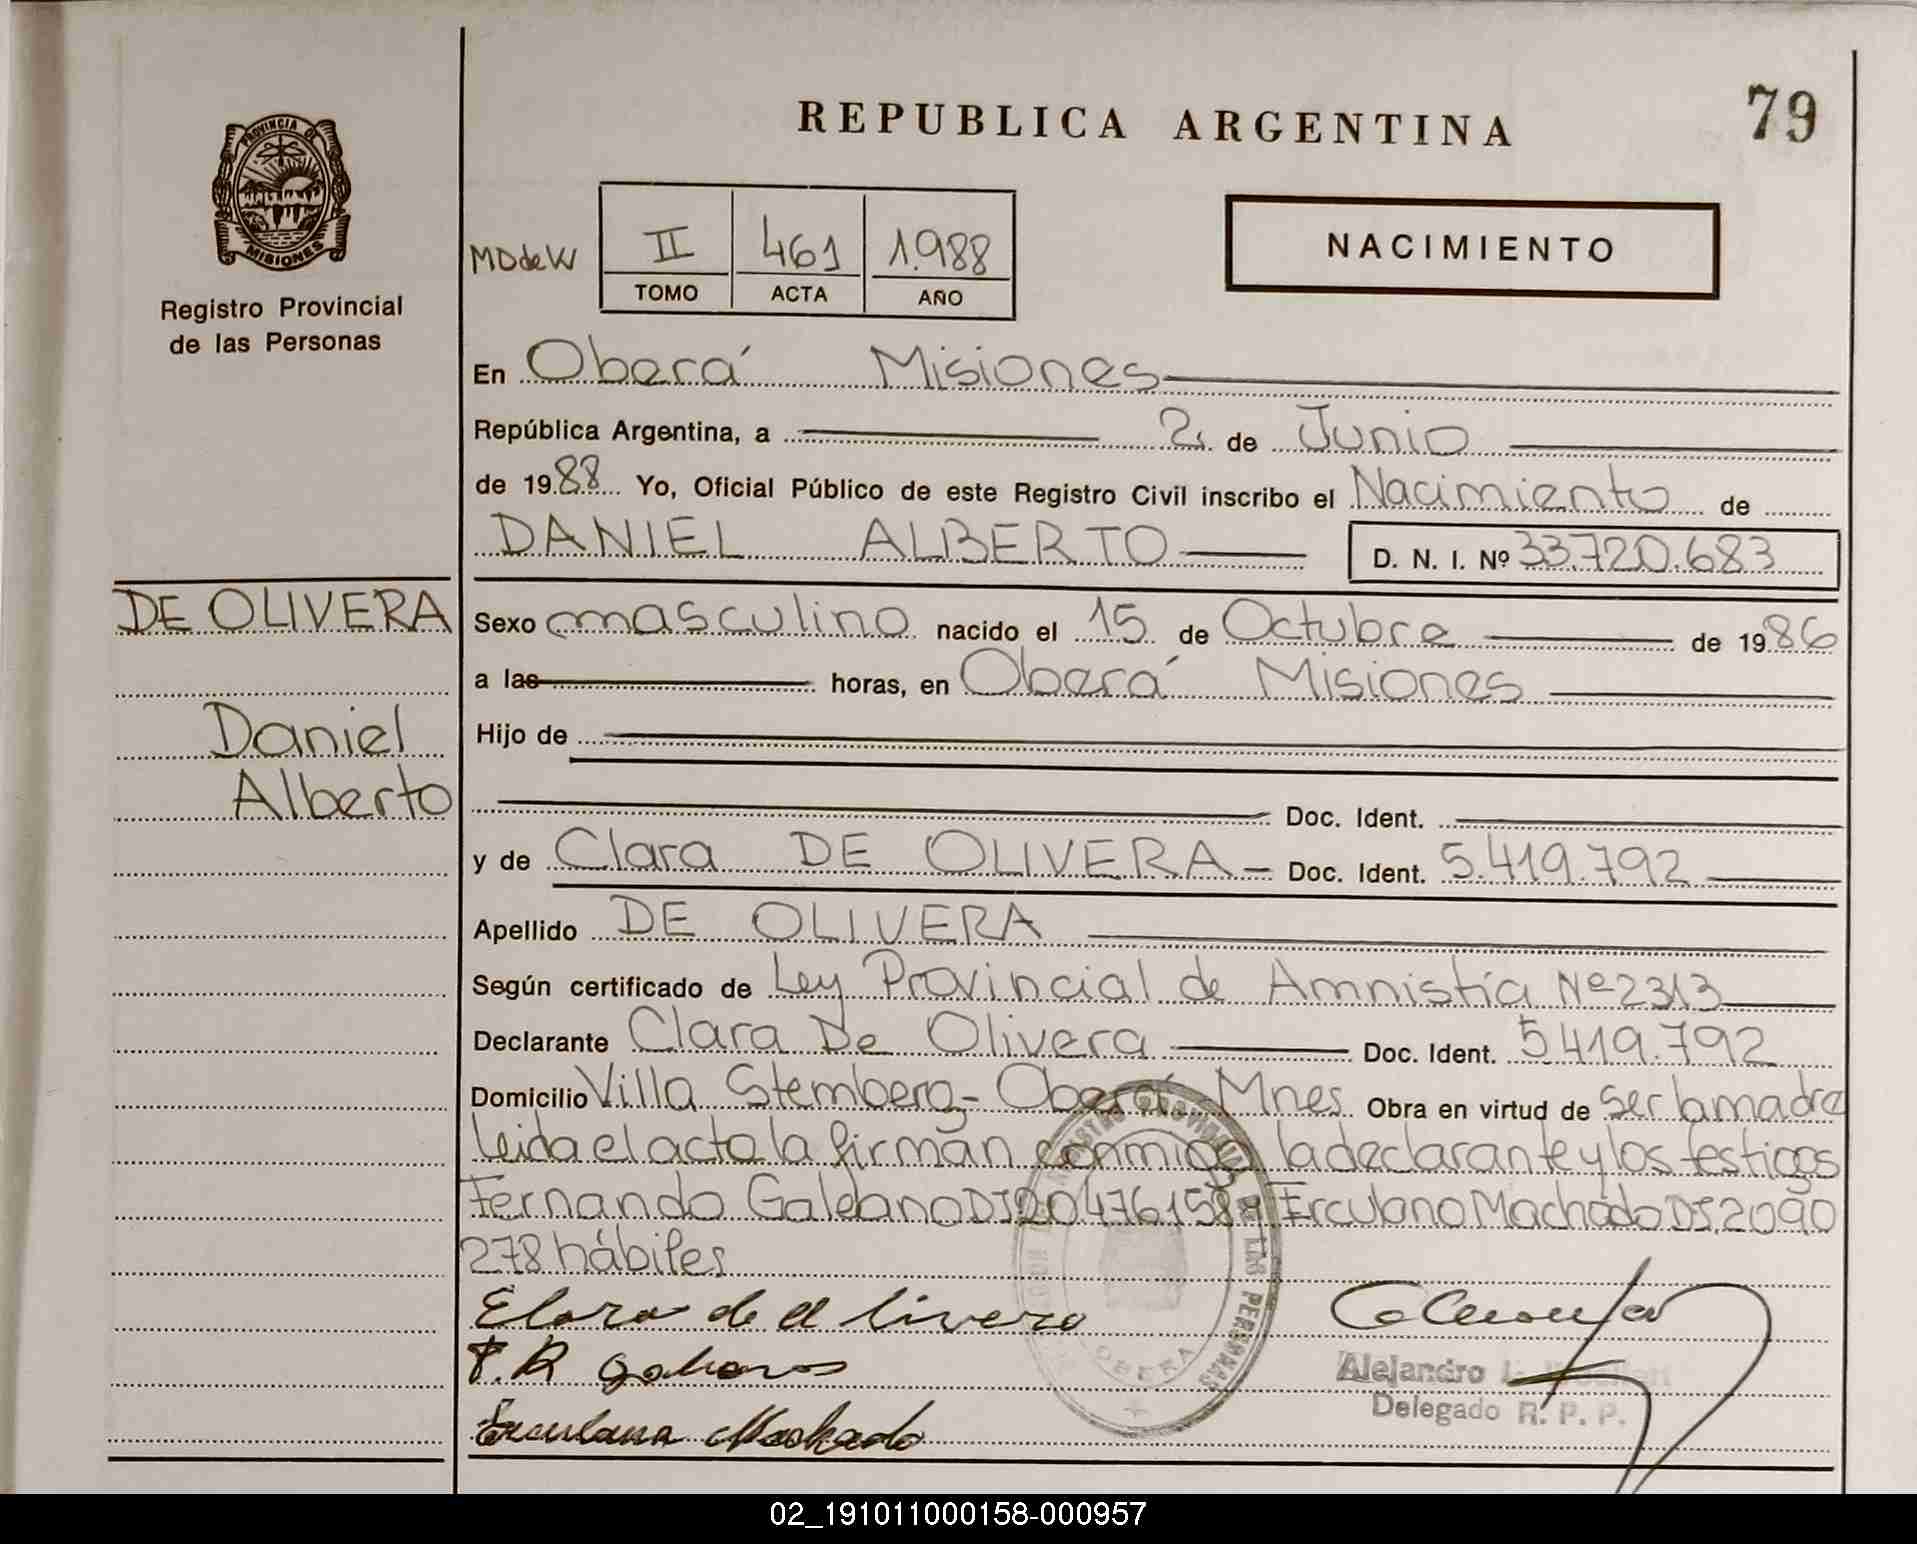 REPUBLICA ARGENTINA
79
PROVINCIA DE
MISIONES
Registro Provincial
de las Personas
MDdeW
II
461
1.988
TOMO
ACTA
AÑO
NACIMIENTO
En Oberá Misiones
República Argentina, a 2 de Junio
de 1988 Yo, Oficial Público de este Registro Civil inscribo el Nacimiento de
DANIEL ALBERTO D. N. I. Nº 33.720.683
DE OLIVERA
Daniel
Alberto
Sexo masculino nacido el 15 de Octubre de 1986
a las horas, en Oberá Misiones
Hijo de
Doc. Ident.
y de Clara DE OLIVERA Doc. Ident. 5.419.792
Apellido DE OLIVERA
Según certificado de Ley Provincial de Amnistía Nº 2313
Declarante Clara De Olivera Doc. Ident. 5.419.792
Domicilio Villa Stemberg - Oberá Mnes Obra en virtud de ser la madre
leida el acta la firman conmigo la declarante y los testigos
Fernando Galeano DI 20476158 Erculano Machado DI 2.090
278 hábiles
Clara de Olivera
F. R. Galeano
Erculano Machado
OBERA
Alejandro
Delegado R. P. P.
02_191011000158-000957